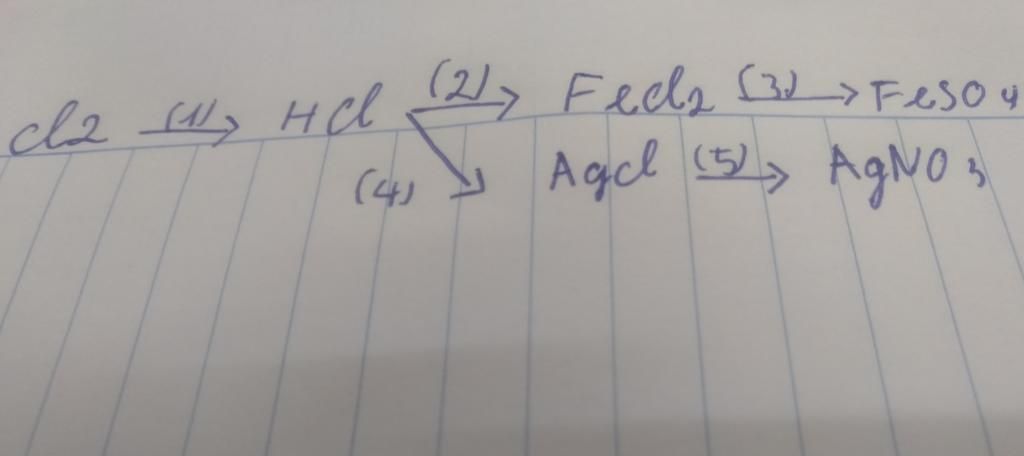 Cl2 (1)→ HCl (2)→ FeCl2 (3)→ FeSO4
(4)↘ AgCl (5)→ AgNO3